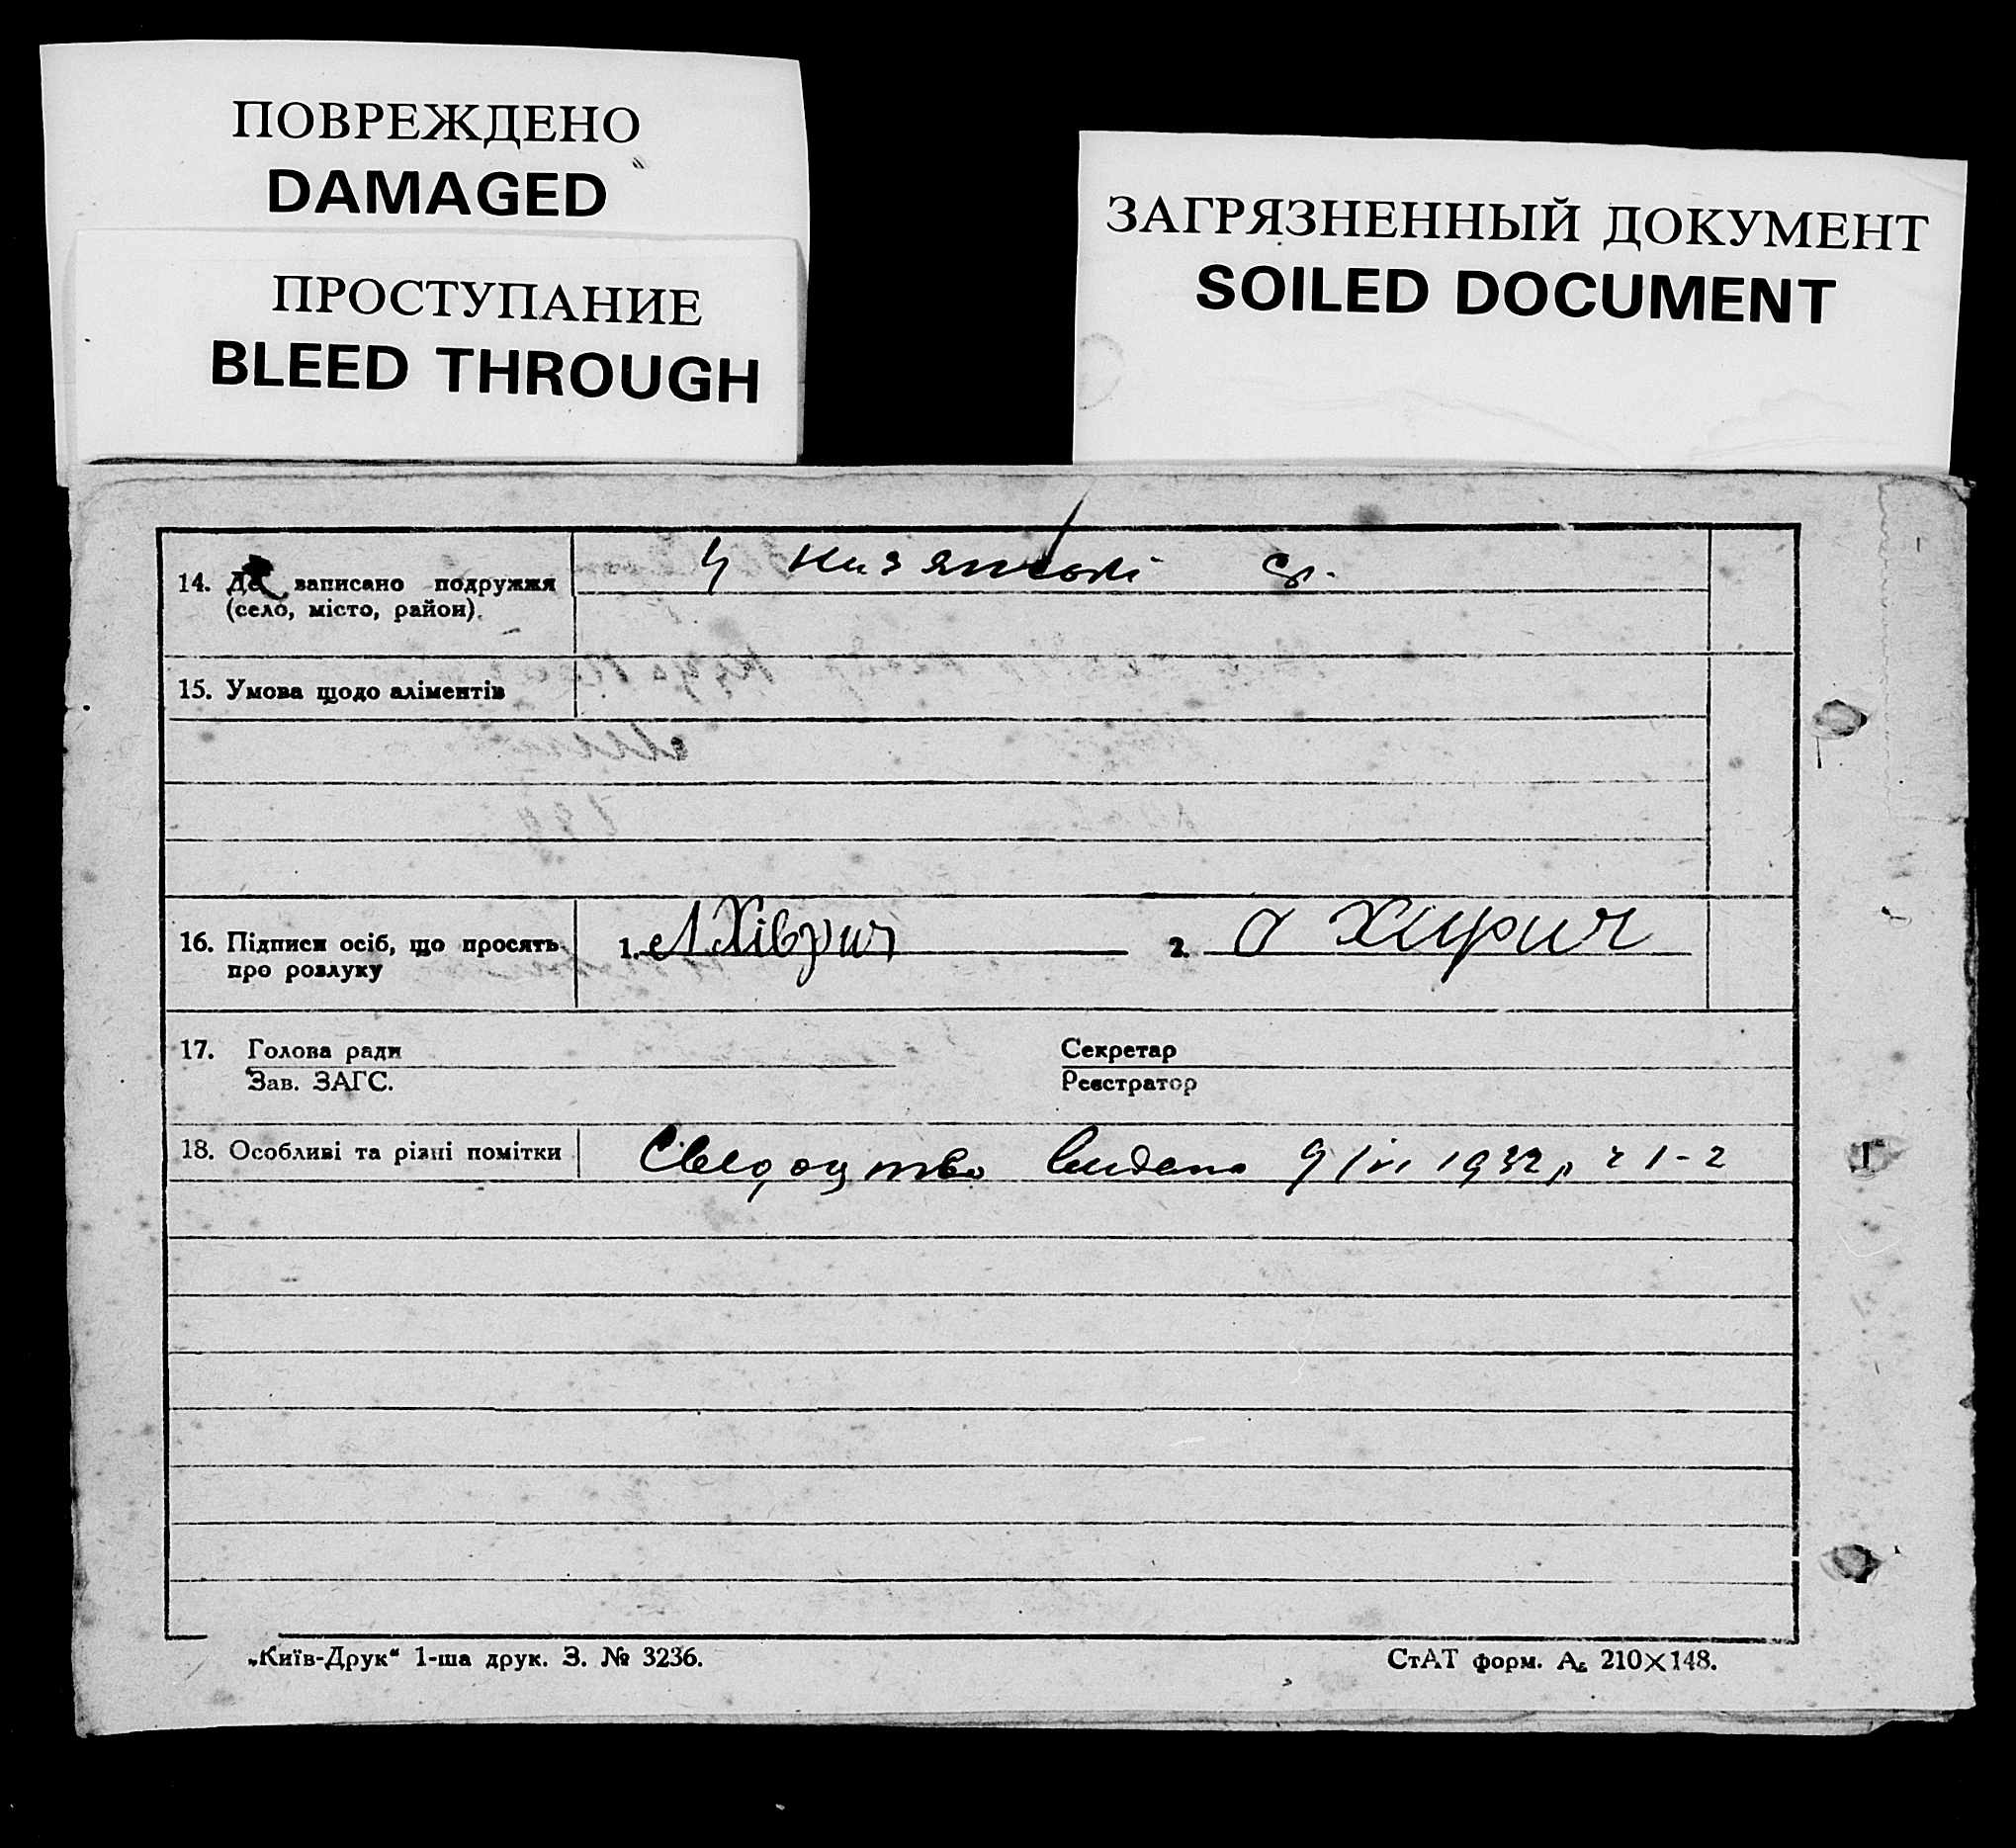 ПОВРЕЖДЕНО
DAMAGED
ПРОСТУПАНИЕ
BLEED THROUGH
ЗАГРЯЗНЕННЫЙ ДОКУМЕНТ
SOILED DOCUMENT
14. Де записано подружжя
(село, місто, район).
У ср.
15. Умова щодо аліментів
16. Підписи осіб, що просять
про розлуку
1. А Хіврич 2.
17. Голова ради Секретар
Зав. ЗАГС. Реєстратор
18. Особливі та різні помітки
Свідоцтво видано 9/VI 1932р ч 1-2
„Київ-Друк“ 1-ша друк. З. № 3236.
СтАТ форм. А₅ 210×148.